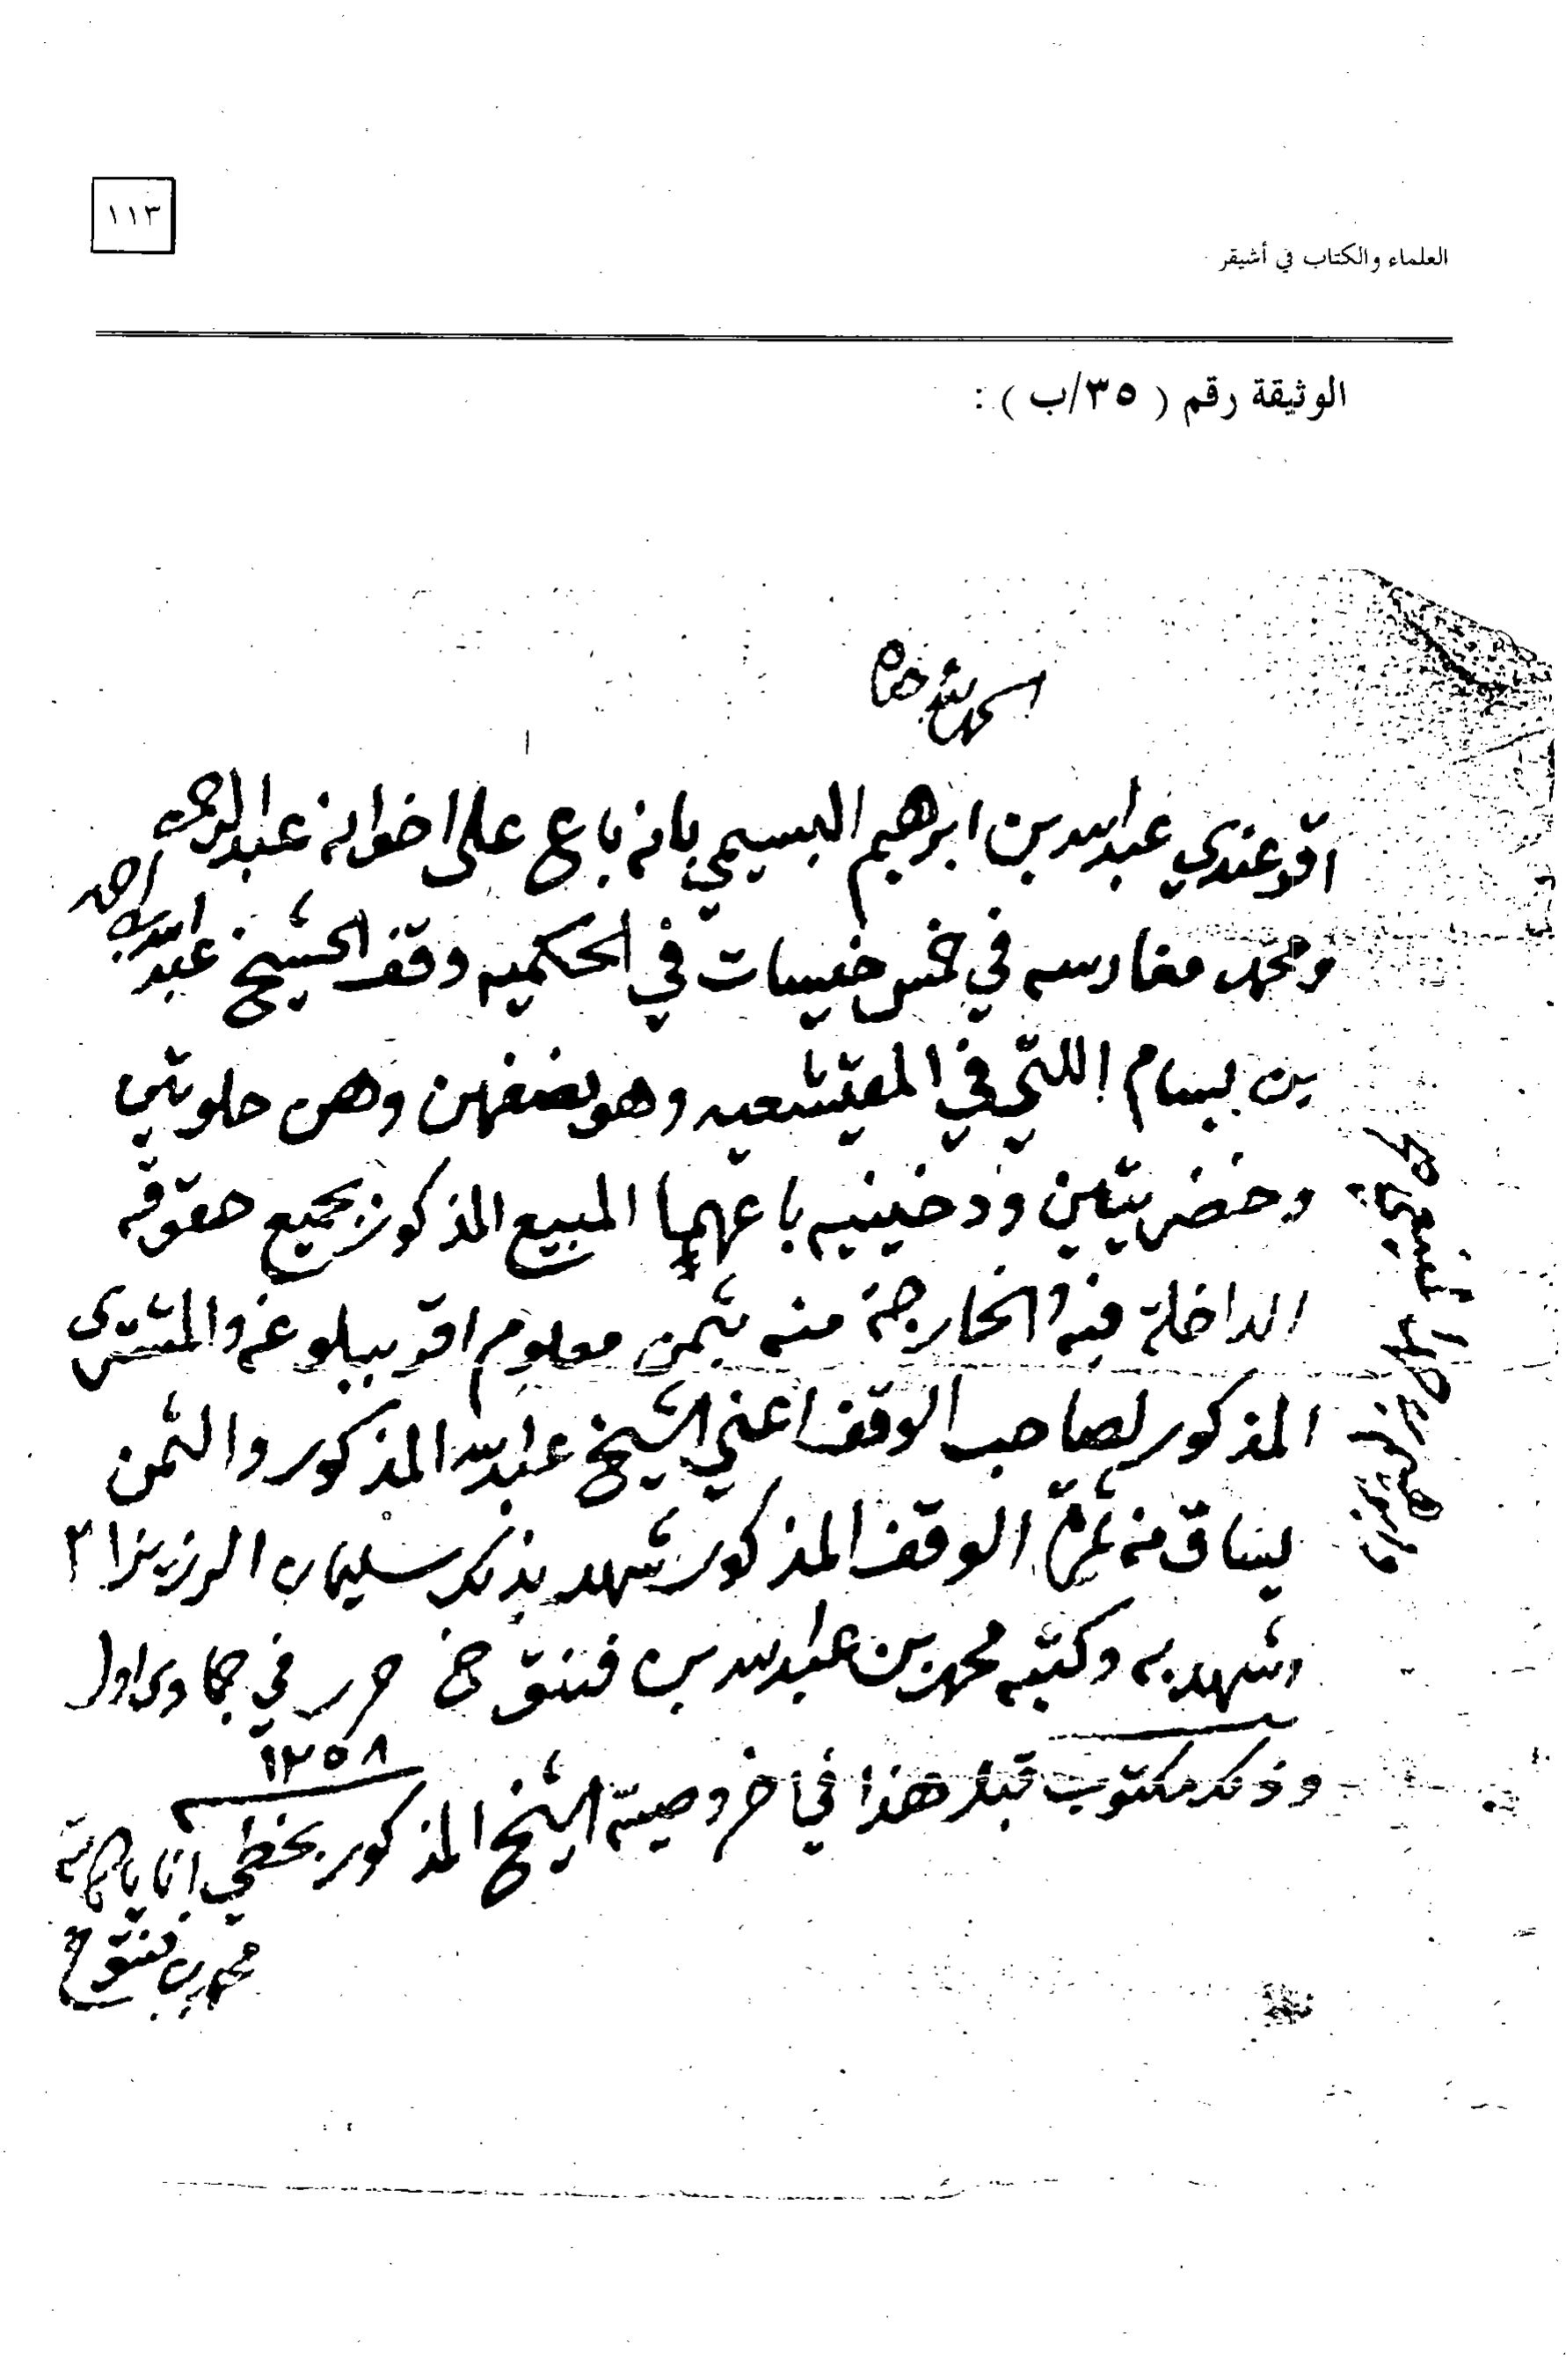 ١١٣
العلماء والكتاب في أشيقر
الوثيقة رقم ( ٣٥/ب ) :
الحمد لله
اقر عندي عبدالله بن ابرهيم البسيمي بانه باع على اخوانه عبدالرحمن
ومحمد مغارسه في خمس خيسات في الحكميه وقف الشيخ عبدالله بن احمد
بن بسام اللتي في المقيتشعيه وهو نصفهن وهن حلوتين
وخضريتين ودخينيه باعهما المبيع المذكور بجميع حقوقه
الداخلة فيه والخارجة منه بثمن معلوم اقر ببلوغه والمشترى
المذكور لصاحب الوقف اعني الشيخ عبدالله المذكور والثمن
يساق من ثمرة الوقف المذكور شهد بذلك سليمان الرزيزا
وشهد به وكتبه محمد بن عبدالله بن فنتوخ حرر في جماد اول
١٢٥٨
وذلك مكتوب قبل هذا في اخر وصية الشيخ المذكور بخطي انا يا كاتبه
محمد بن فنتوخ